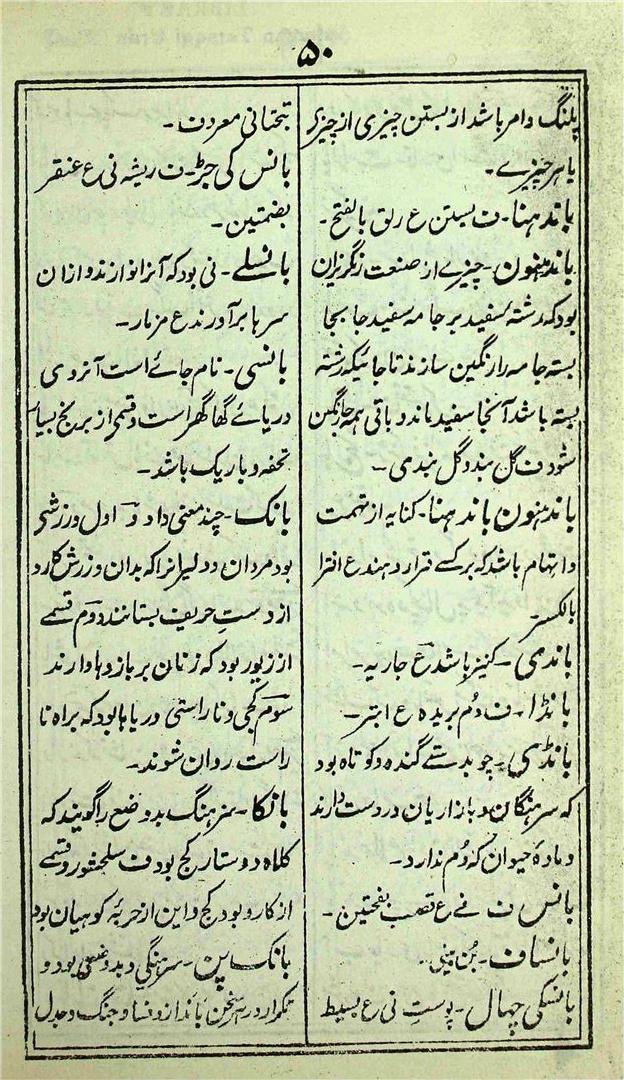 ۵۰
پلنگ و امر باشد از بستن چیزی از چیز کر
یا هر چیزے۔
باندہنا۔ ف بستن ع ربق بالفتح۔
باندہنون۔ چیزے از صنعت رنگریزان
بود کہ رشتہ سفید بر جامہ سفید جا بجا
بستہ جامہ را رنگین سازند تا جائیکہ رشتہ
بستہ باشد آنجا سفید ماند و باقی ہمہ جا رنگین
شود ف گل بند و گل بندی۔
باندہنون باندہنا۔ کنایہ از تہمت
و اتہام باشد کہ بر کسے قرار دہند ع افترا
بالکسر۔
باندی۔ کنیز باشد ع جاریہ۔
بانڈا۔ ف دُم بریدہ ع ابتر۔
بانڈی۔ چوبدستے گندہ و کوتاہ بود
کہ سرہنگان و بازاریان در دست دارند
و مادۂ حیوان کہ دُم ندارد۔
بانس ف نے ع قصب بفتحتین۔
بانساف۔ بُن بینی۔
بانسکی چہال۔ پوستِ نی ع بسیط
تحتانی معروف۔
بانس کی جڑ۔ ف ریشہ نی ع عنقر
بضمتین۔
بانسلے۔ نی بود کہ آنرا نوازند و ازان
سرہا بر آورند ع مزمار۔
بانسی۔ نام جائے است آنروی
دریائے گھاگھر است و قسمی از برنج بسیار
تحفہ و باریک باشد۔
بانک۔ چند معنی دارد اول ورزشی
بود مردان و دلیرانرا کہ بدان ورزش کارد
از دستِ حریف بستانند دوم قسمے
از زیور بود کہ زنان بر بازوہا دارند
سوم کجی و ناراستی دریاہا بود کہ براہ نا
راست روان شوند۔
بانکا۔ سرہنگ بد وضع را گویند کہ
کلاہ و دستار کج بود ف سلحشور و قسمے
از کارد بود کج و این از حربۂ کوہیان بود
بانک پن۔ سرہنگی و بد وضعی بود و
تکرار در سخن بانداز و فساد جنگ و جدل